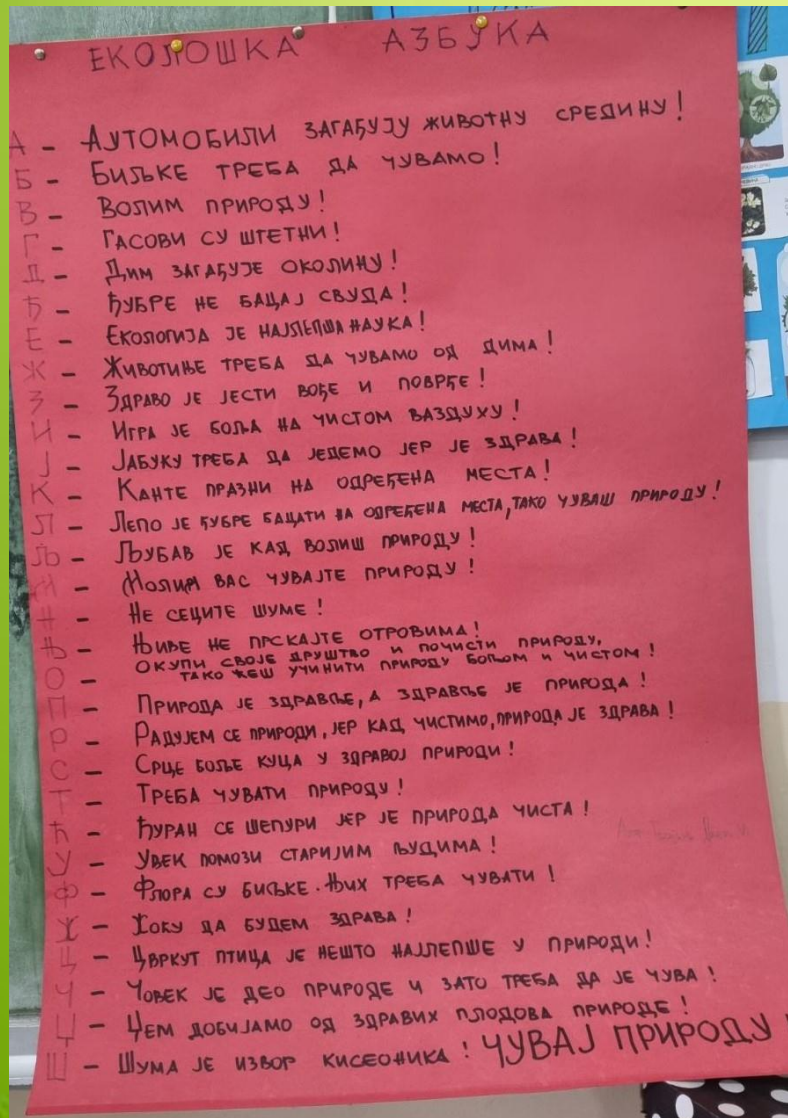 ЕКОЛОШКА АЗБУКА
А - АУТОМОБИЛИ ЗАГАЂУЈУ ЖИВОТНУ СРЕДИНУ!
Б - БИЉКЕ ТРЕБА ДА ЧУВАМО!
В - ВОЛИМ ПРИРОДУ!
Г - ГАСОВИ СУ ШТЕТНИ!
Д - ДИМ ЗАГАЂУЈЕ ОКОЛИНУ!
Ђ - ЂУБРЕ НЕ БАЦАЈ СВУДА!
Е - ЕКОЛОГИЈА ЈЕ НАЈЛЕПША НАУКА!
Ж - ЖИВОТИЊЕ ТРЕБА ДА ЧУВАМО ОД ДИМА!
З - ЗДРАВО ЈЕ ЈЕСТИ ВОЋЕ И ПОВРЋЕ!
И - ИГРА ЈЕ БОЉА НА ЧИСТОМ ВАЗДУХУ!
Ј - ЈАБУКУ ТРЕБА ДА ЈЕДЕМО ЈЕР ЈЕ ЗДРАВА!
К - КАНТЕ ПРАЗНИ НА ОДРЕЂЕНА МЕСТА!
Л - ЛЕПО ЈЕ ЂУБРЕ БАЦАТИ НА ОДРЕЂЕНА МЕСТА, ТАКО ЧУВАШ ПРИРОДУ!
Љ - ЉУБАВ ЈЕ КАД ВОЛИШ ПРИРОДУ!
М - МОЛИМ ВАС ЧУВАЈТЕ ПРИРОДУ!
Н - НЕ СЕЦИТЕ ШУМЕ!
Њ - ЊИВЕ НЕ ПРСКАЈТЕ ОТРОВИМА!
О - ОКУПИ СВОЈЕ ДРУШТВО И ПОЧИСТИ ПРИРОДУ,
ТАКО ЋЕШ УЧИНИТИ ПРИРОДУ БОЉОМ И ЧИСТОМ!
П - ПРИРОДА ЈЕ ЗДРАВЉЕ, А ЗДРАВЉЕ ЈЕ ПРИРОДА!
Р - РАДУЈЕМ СЕ ПРИРОДИ, ЈЕР КАД ЧИСТИМО, ПРИРОДА ЈЕ ЗДРАВА!
С - СРЦЕ БОЉЕ КУЦА У ЗДРАВОЈ ПРИРОДИ!
Т - ТРЕБА ЧУВАТИ ПРИРОДУ!
Ћ - ЋУРАН СЕ ШЕПУРИ ЈЕР ЈЕ ПРИРОДА ЧИСТА!
У - УВЕК ПОМОЗИ СТАРИЈИМ ЉУДИМА!
Ф - ФЛОРА СУ БИЉКЕ. ЊИХ ТРЕБА ЧУВАТИ!
Х - ХОЋУ ДА БУДЕМ ЗДРАВА!
Ц - ЦВРКУТ ПТИЦА ЈЕ НЕШТО НАЈЛЕПШЕ У ПРИРОДИ!
Ч - ЧОВЕК ЈЕ ДЕО ПРИРОДЕ И ЗАТО ТРЕБА ДА ЈЕ ЧУВА!
Џ - ЏЕМ ДОБИЈАМО ОД ЗДРАВИХ ПЛОДОВА ПРИРОДЕ!
Ш - ШУМА ЈЕ ИЗВОР КИСЕОНИКА! ЧУВАЈ ПРИРОДУ!